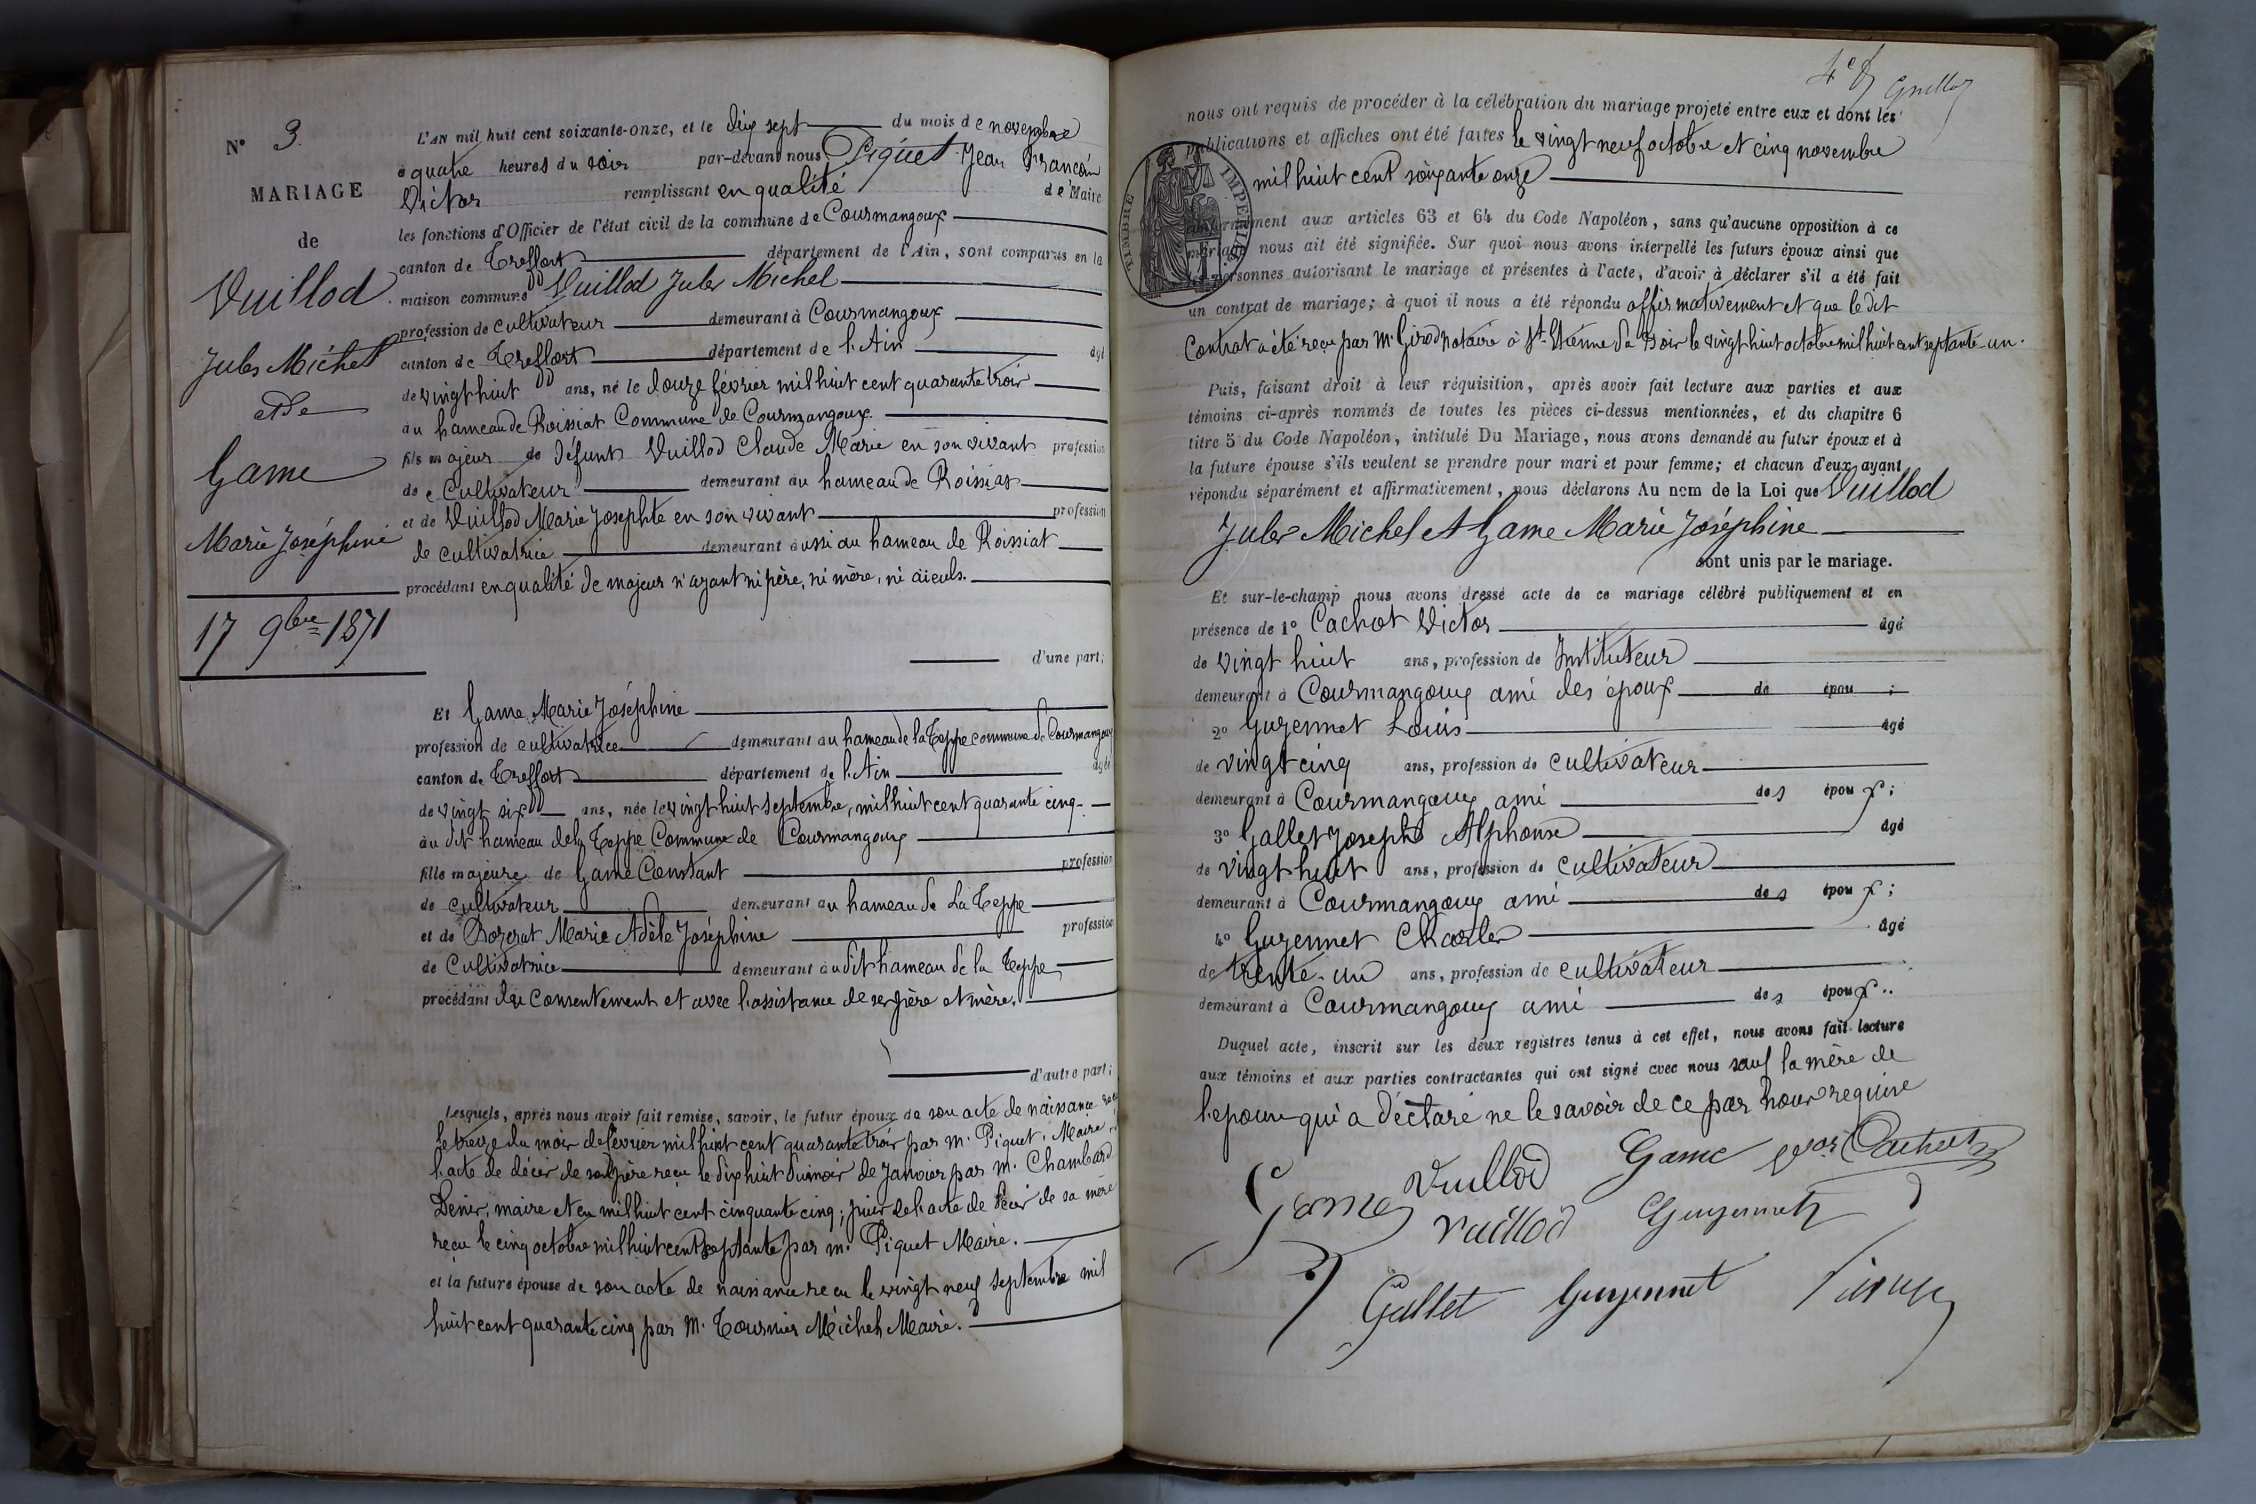 N° 3.
MARIAGE
de
Vuillod
Jules Michel
et de
Game
Marie Joséphine
17 9bre 1871
L'AN mil huit cent soixante-onze, et le dix sept du mois de novembre
à quatre heures du soir par-devant nous Piquet Jean François
Victor remplissant en qualité de Maire
les fonctions d'Officier de l'état civil de la commune de Courmangoux
canton de Treffort département de l'Ain, sont comparus en la
maison commune Vuillod Jules Michel
profession de cultivateur demeurant à Courmangoux
canton de Treffort département de l'Ain âgé
de vingt huit ans, né le douze février mil huit cent quarante trois
au hameau de Roissiat Commune de Courmangoux.
fils majeur de défunt Vuillod Claude Marie en son vivant profession
de Cultivateur demeurant au hameau de Roissiat
et de Vuillod Marie Josephte en son vivant profession
de cultivatrice demeurant aussi au hameau de Roissiat
procédant en qualité de majeur n'ayant ni père, ni mère, ni aïeuls.
d'une part;
Et Game Marie Joséphine
profession de cultivatrice demeurant au hameau de la Teppe commune de Courmangoux
canton de Treffort département de l'Ain âgée
de vingt six ans, née le vingt huit septembre, mil huit cent quarante cinq
au dit hameau de la Teppe Commune de Courmangoux
fille majeure de Game Constant profession
de cultivateur demeurant au hameau de La Teppe
et de Bozerat Marie Adèle Joséphine profession
de Cultivatrice demeurant audit hameau de la Teppe,
procédant du Consentement et avec l'assistance de ses père et mère.
d'autre part;
Lesquels, après nous avoir fait remise, savoir, le futur époux de son acte de naissance reçu
le treize du mois de février mil huit cent quarante trois par M. Piquet, Maire,
l'acte de décès de son père reçu le dix huit du mois de Janvier par M. Chambard
Denis, maire et en mil huit cent cinquante cinq; puis de l'acte de décès de sa mère
reçu le cinq octobre mil huit cent septante par M. Piquet Maire.
et la future épouse de son acte de naissance reçu le vingt neuf septembre mil
huit cent quarante cinq par M. Tournier Michel, Maire.
4e
nous ont requis de procéder à la célébration du mariage projeté entre eux et dont les
publications et affiches ont été faites le vingt neuf octobre et cinq novembre
mil huit cent soixante onze
TIMBRE IMPERIAL
conformément aux articles 63 et 64 du Code Napoléon, sans qu'aucune opposition à ce
mariage nous ait été signifiée. Sur quoi nous avons interpellé les futurs époux ainsi que
les personnes autorisant le mariage et présentes à l'acte, d'avoir à déclarer s'il a été fait
un contrat de mariage; à quoi il nous a été répondu affirmativement et que le dit
Contrat a été reçu par M. Girod notaire à St. Etienne du Bois le vingt huit octobre mil huit cent septante-un.
Puis, faisant droit à leur réquisition, après avoir fait lecture aux parties et aux
témoins ci-après nommés de toutes les pièces ci-dessus mentionnées, et du chapitre 6
titre 5 du Code Napoléon, intitulé Du Mariage, nous avons demandé au futur époux et à
la future épouse s'ils veulent se prendre pour mari et pour femme; et chacun d'eux ayant
répondu séparément et affirmativement, nous déclarons Au nom de la Loi que Vuillod
Jules Michel et Game Marie Joséphine
sont unis par le mariage.
Et sur-le-champ nous avons dressé acte de ce mariage célébré publiquement et en
présence de 1° Cachot Victor âgé
de vingt huit ans, profession de Instituteur
demeurant à Courmangoux ami des époux de épou ;
2° Guyennet Louis âgé
de vingt cinq ans, profession de cultivateur
demeurant à Courmangoux ami des époux;
3° Gallet Joseph Alphonse âgé
de vingt huit ans, profession de cultivateur
demeurant à Courmangoux ami des époux;
4° Guyennet Charles âgé
de trente-un ans, profession de cultivateur
demeurant à Courmangoux ami des époux..
Duquel acte, inscrit sur les deux registres tenus à cet effet, nous avons fait lecture
aux témoins et aux parties contractantes qui ont signé avec nous sauf la mère de
l'epouse qui a déclaré ne le savoir de ce par nous requise
Game Vuillod Game Vor Cachot
Vuillod Guyennet
Gallet Guyennet Piquet